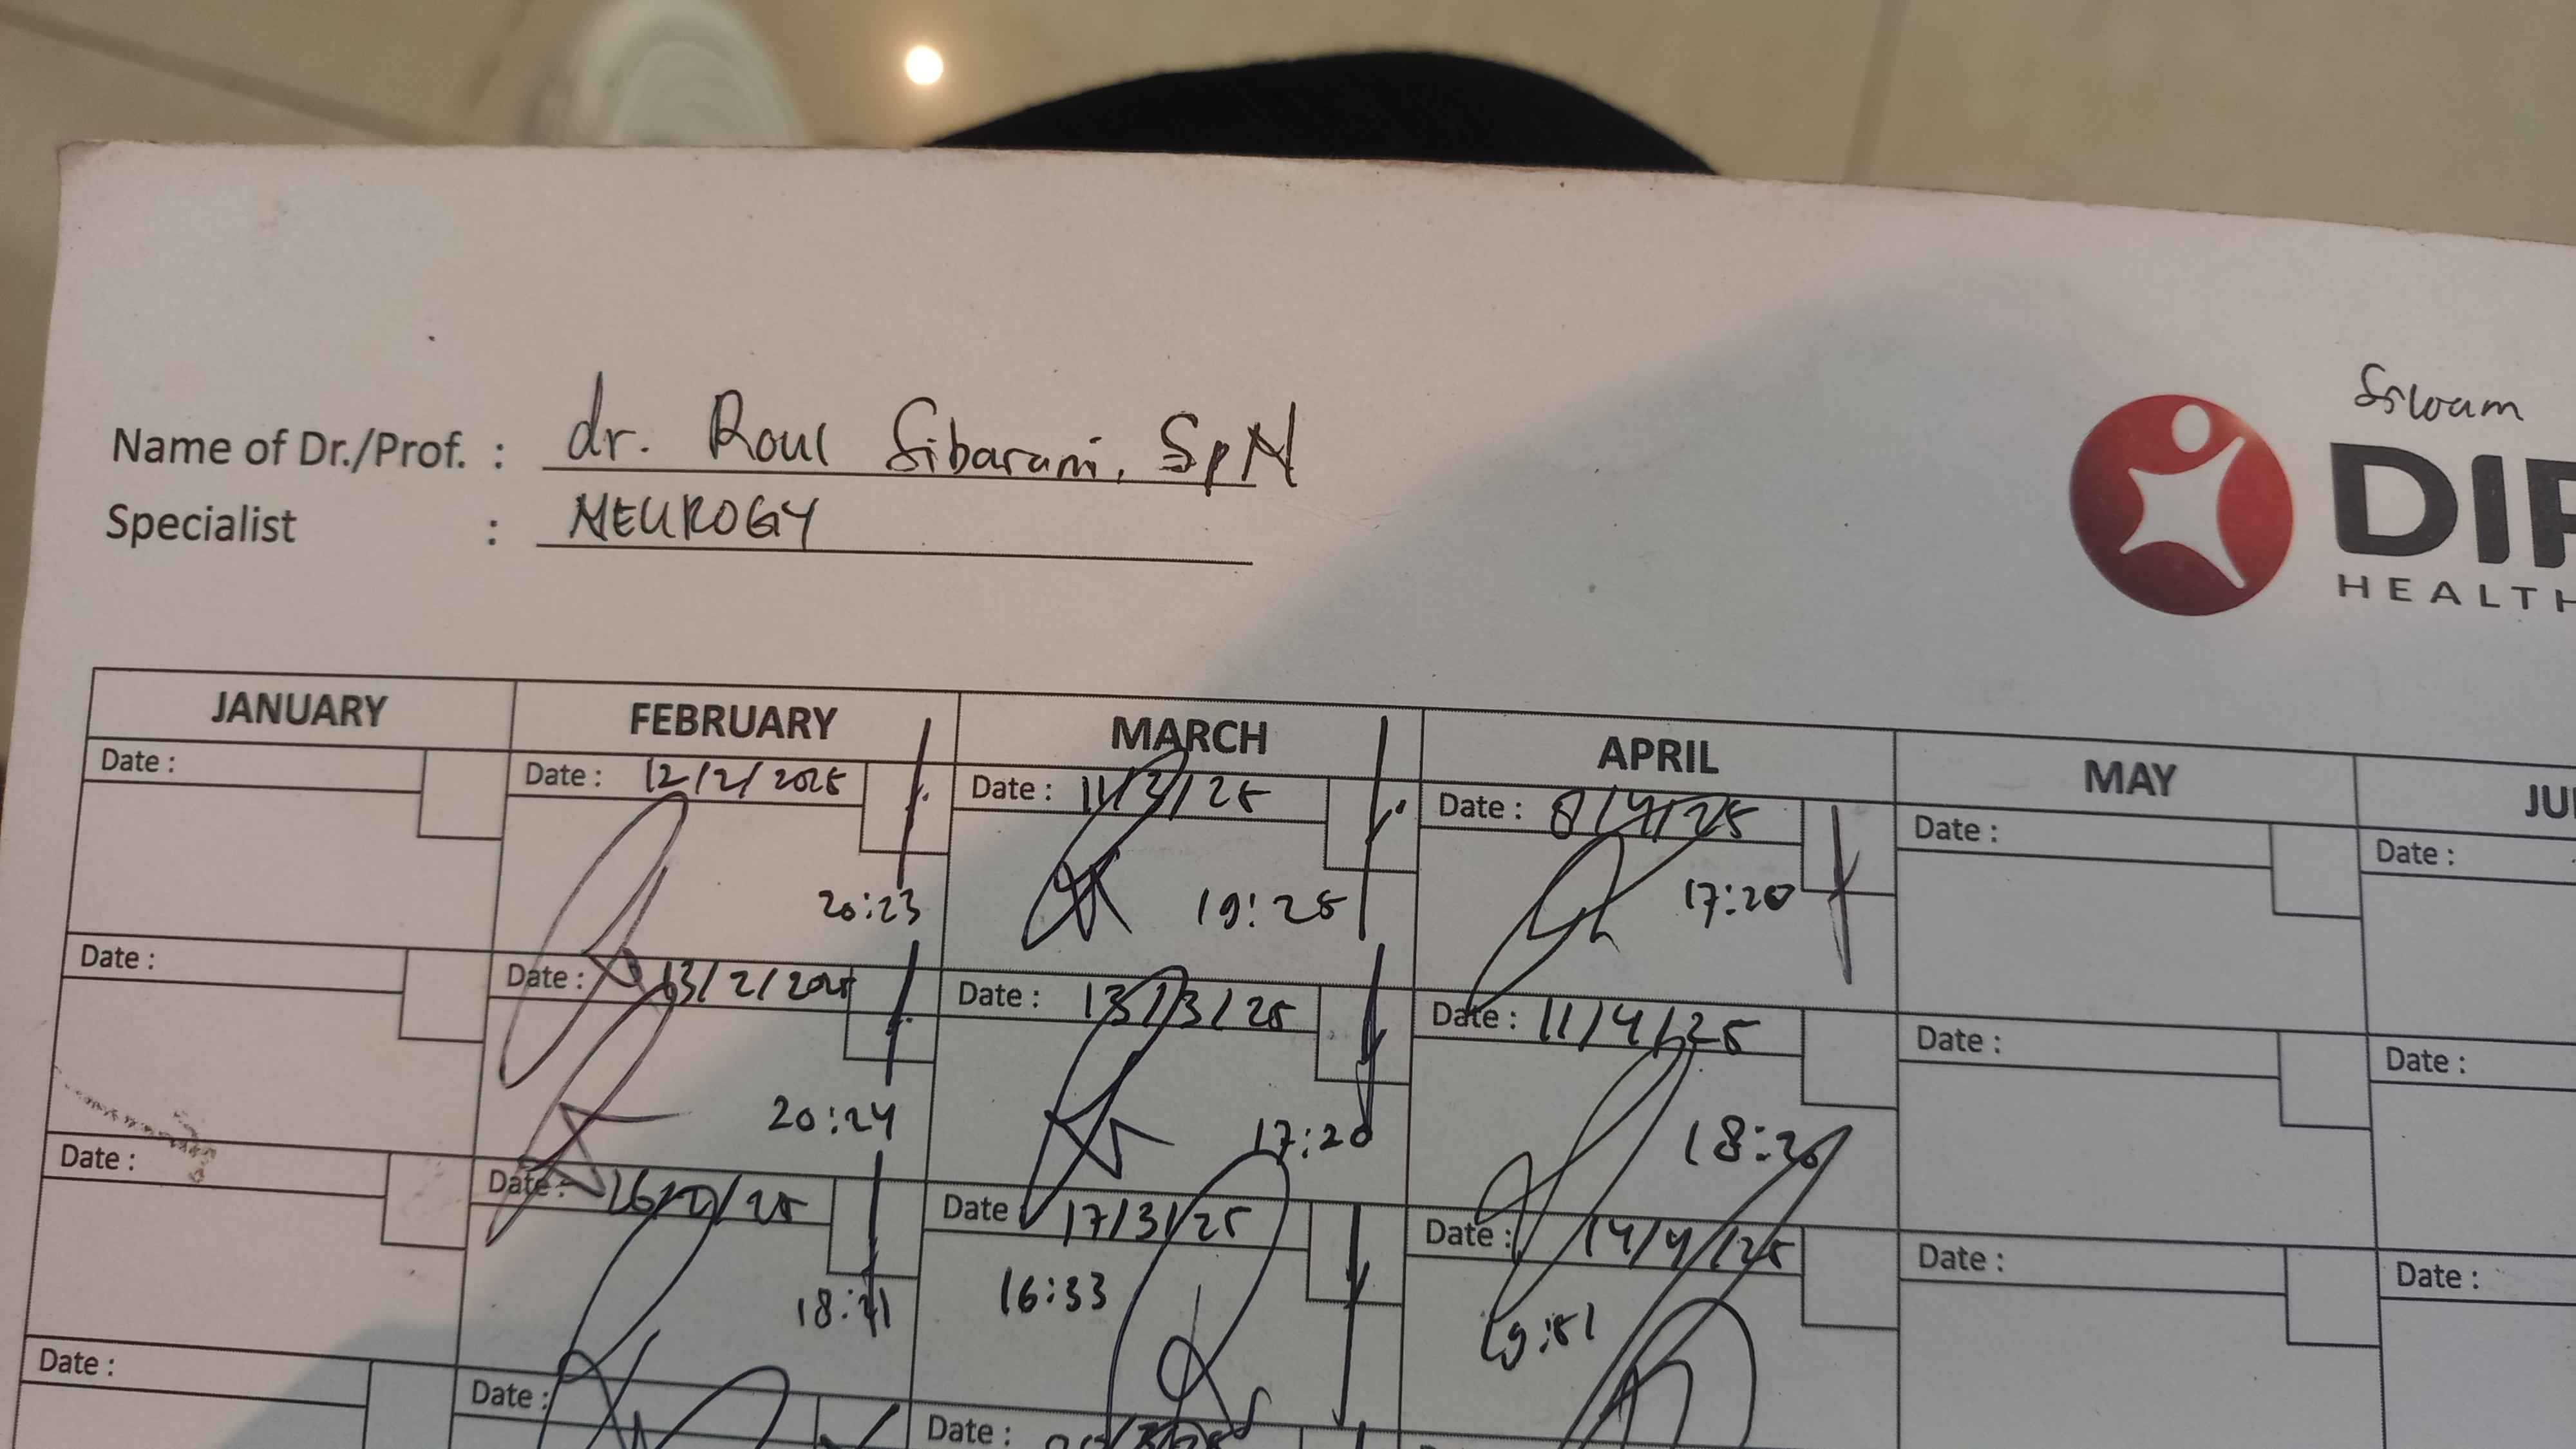 Siloam
Name of Dr./Prof. : dr. Roul Sibarani, SpN
DIP
Specialist : NEUROGY
HEALTH
JANUARY FEBRUARY MARCH APRIL MAY JU
Date : Date : 12/2/2025 Date : 11/3/25 Date : 8/4/25 Date : Date :
20:23 19:25 17:20
Date : Date : 13/2/2025 Date : 13/3/25 Date : 11/4/25 Date : Date :
20:24 17:20 18:20
Date : Date : 26/2/25 Date 17/3/25 Date : 14/4/25 Date : Date :
18:21 16:33 19:51
Date : Date : Date :